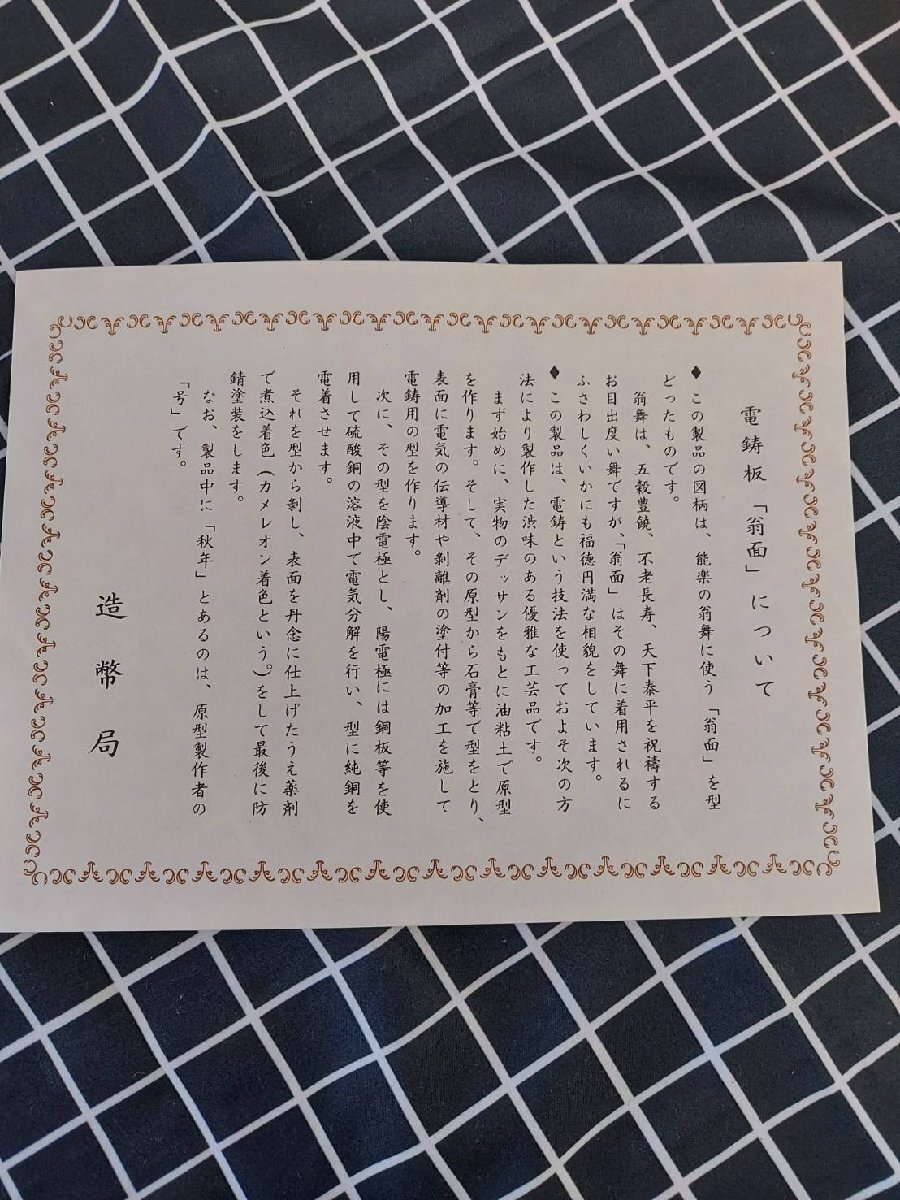 電鋳板「翁面」について
◆この製品の図柄は、能楽の翁舞に使う「翁面」を型
どったものです。
翁舞は、五穀豊饒、不老長寿、天下泰平を祝祷する
お目出度い舞ですが、「翁面」はその舞に着用されるに
ふさわしくいかにも福徳円満な相貌をしています。
◆この製品は、電鋳という技法を使っておよそ次の方
法により製作した渋味のある優雅な工芸品です。
まず始めに、実物のデッサンをもとに油粘土で原型
を作ります。そして、その原型から石膏等で型をとり、
表面に電気の伝導材や剝離剤の塗付等の加工を施して
電鋳用の型を作ります。
次に、その型を陰電極とし、陽電極には銅板等を使
用して硫酸銅の溶液中で電気分解を行い、型に純銅を
電着させます。
それを型から剝し、表面を丹念に仕上げたうえ薬剤
で煮込着色(カメレオン着色という。)をして最後に防
錆塗装をします。
なお、製品中に「秋年」とあるのは、原型製作者の
「号」です。
造幣局